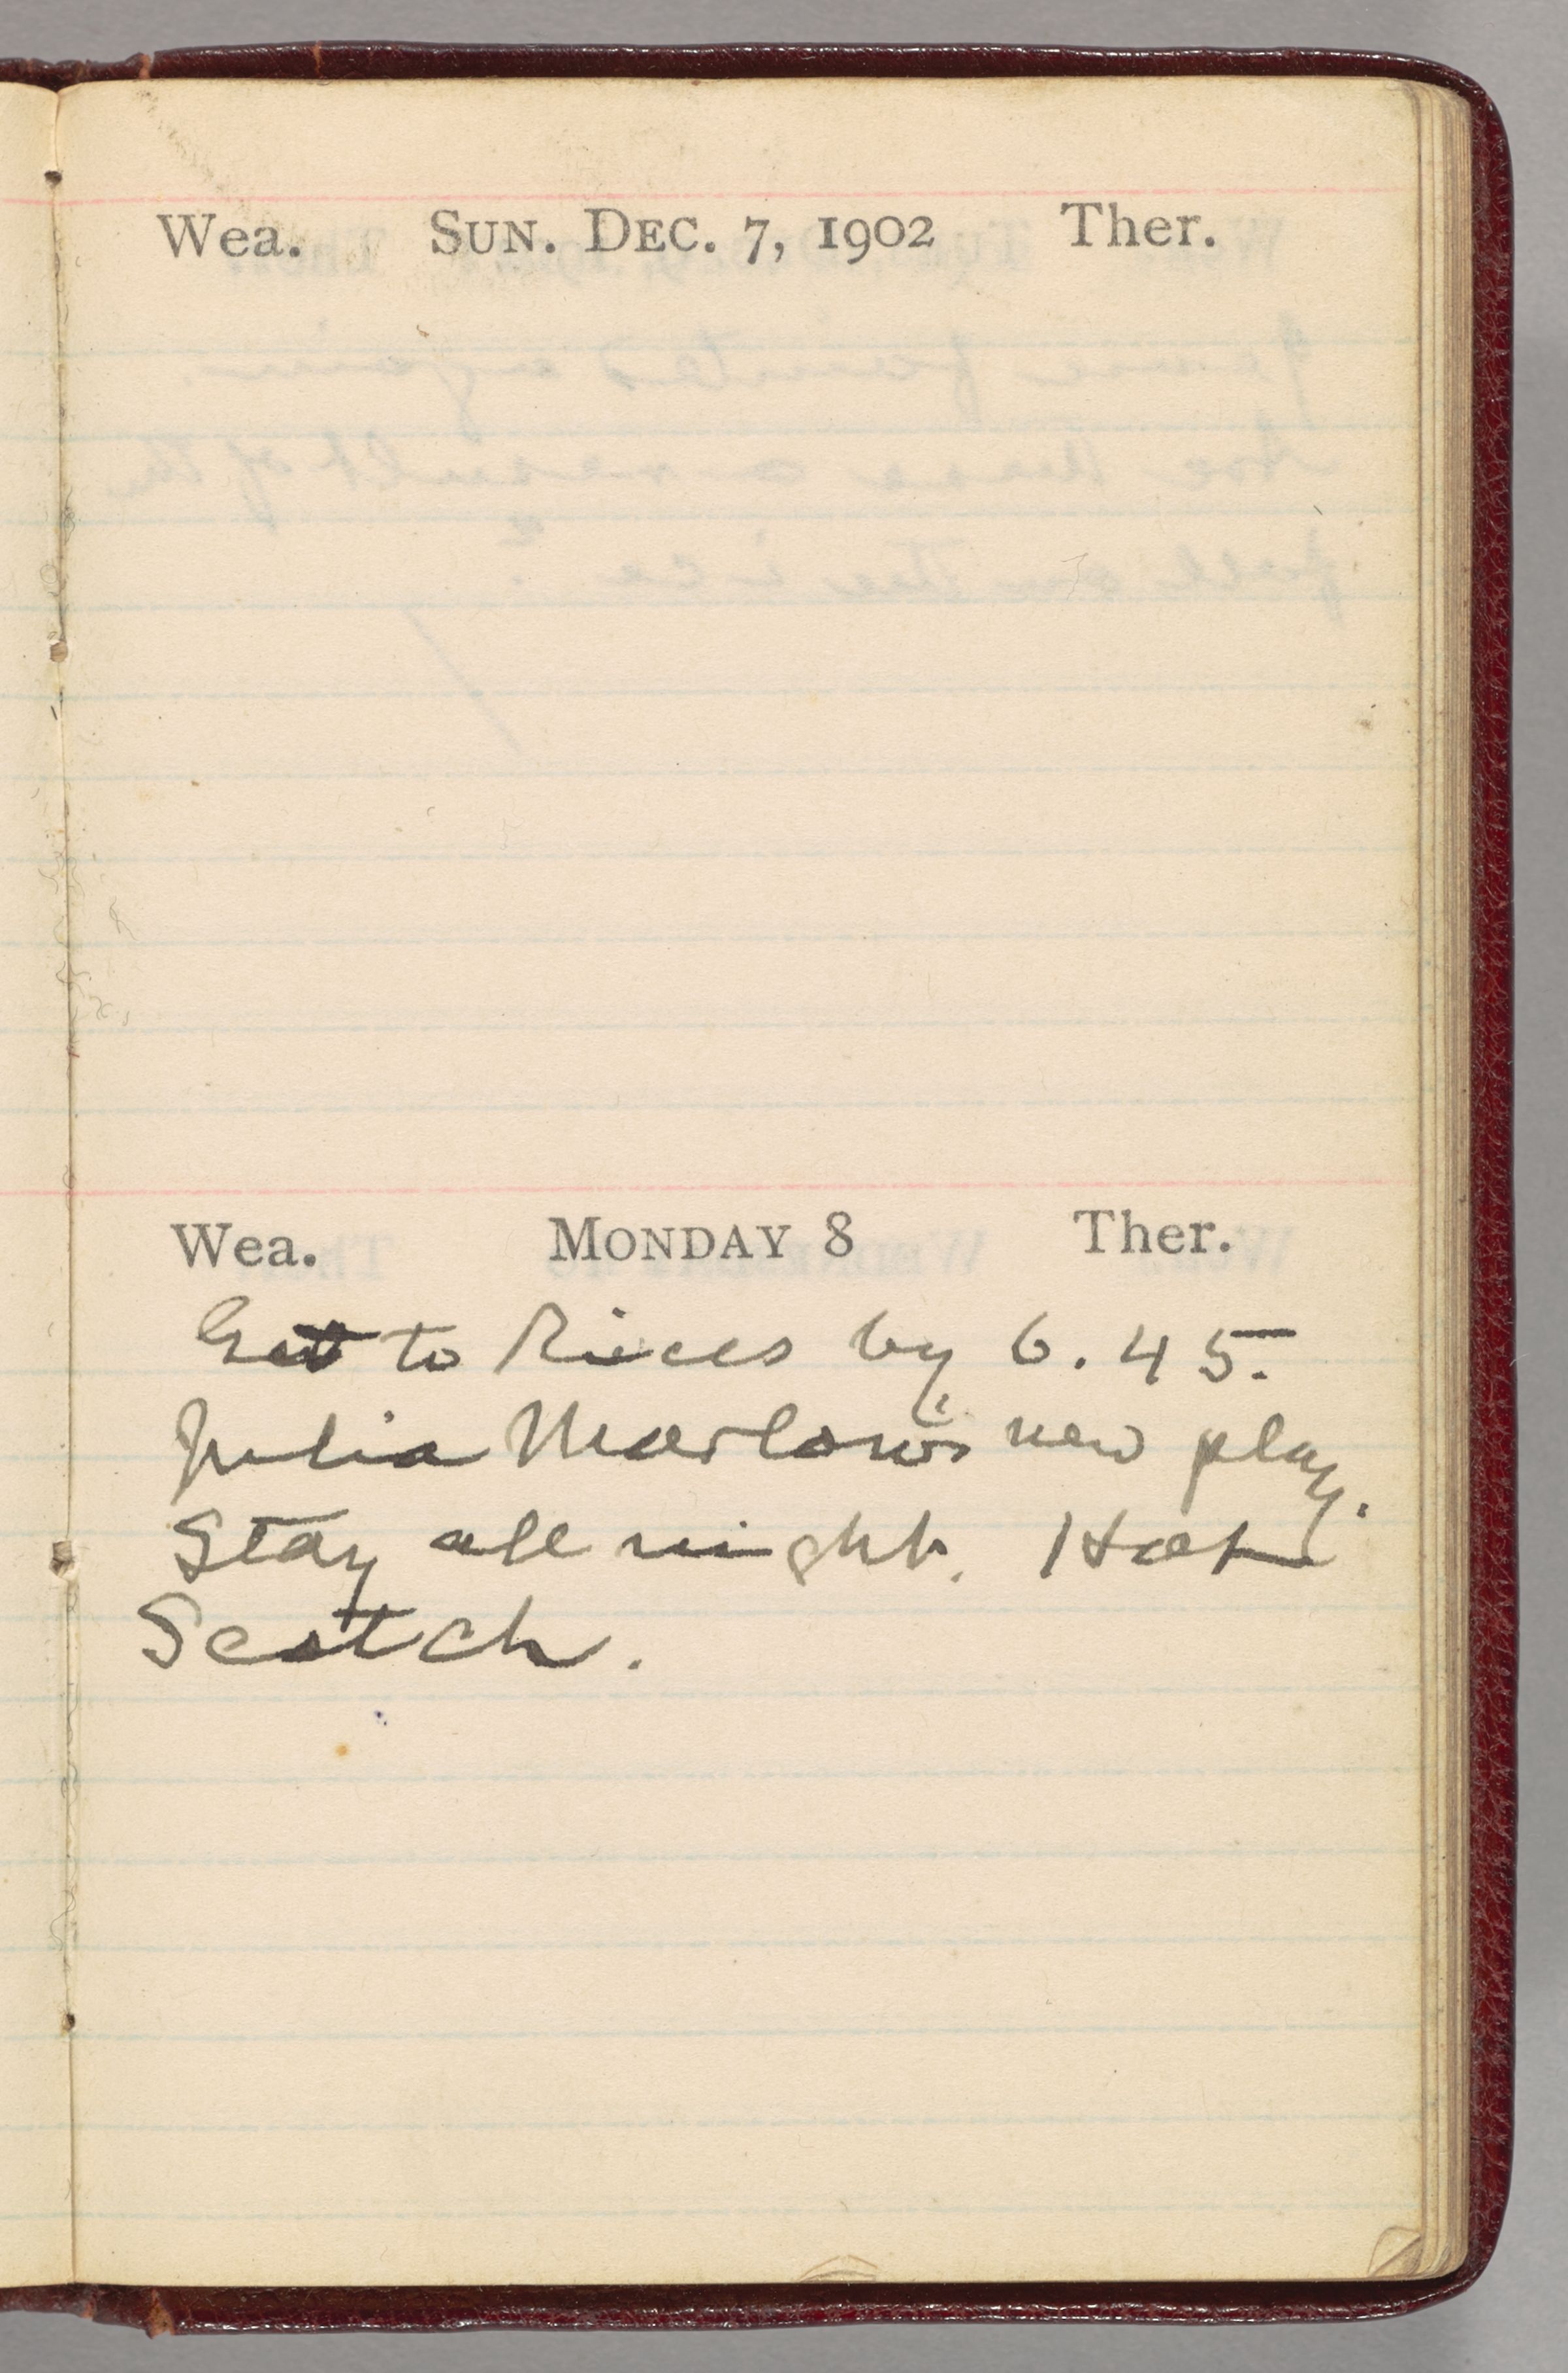 Wea. SUN. DEC. 7, 1902 Ther.
Wea. MONDAY 8 Ther.
Get to Rices by 6.45.
Julia Marlow's new play.
Stay all night. Hot
Scotch.